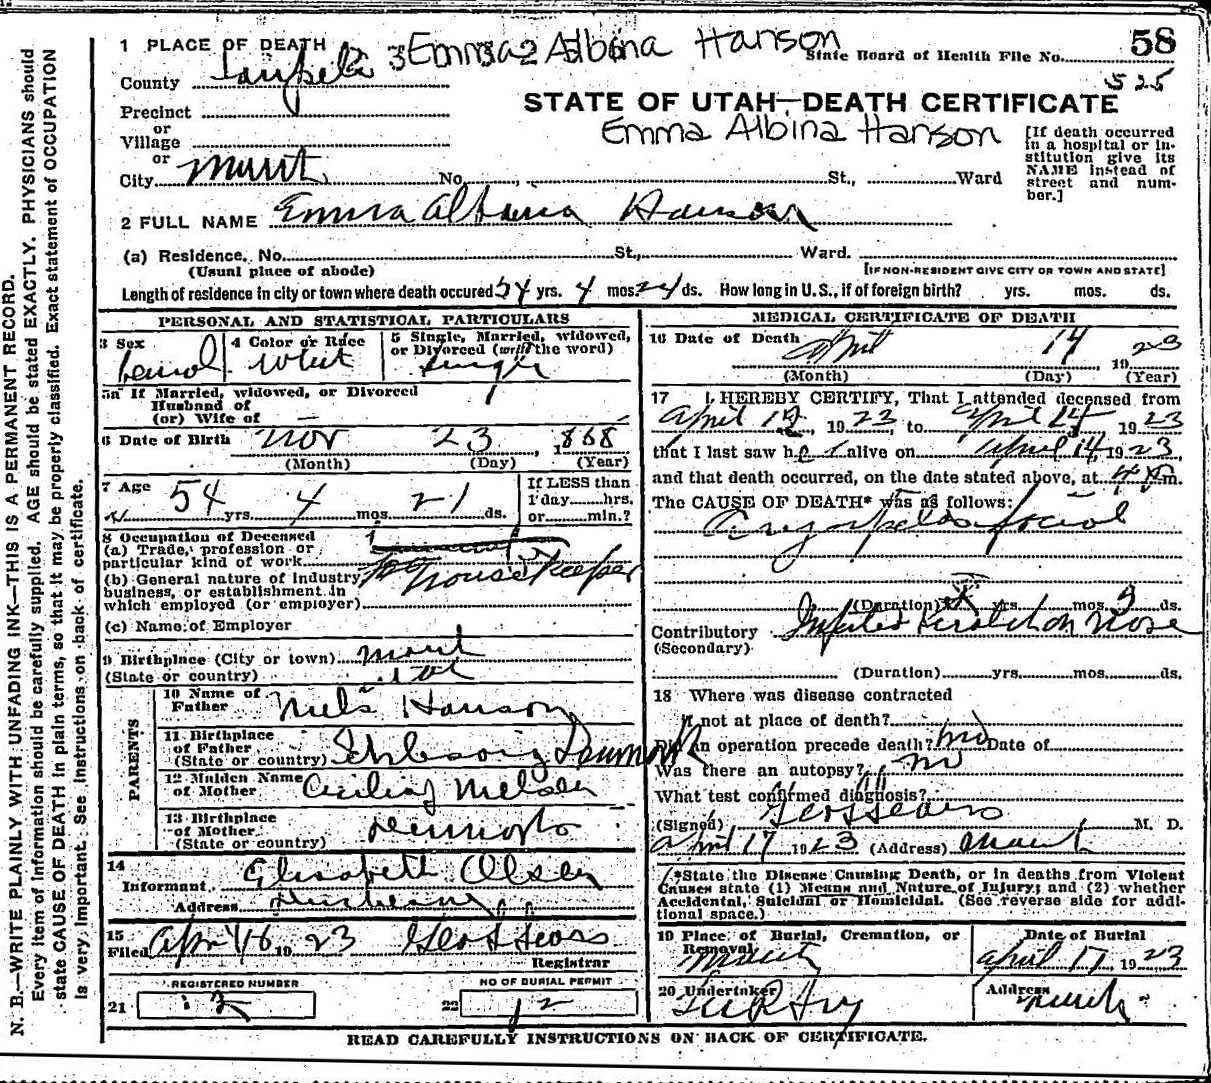 1 PLACE OF DEATH
Emma Albina Hanson
State Board of Health File No. 58
County Sanpete
525
STATE OF UTAH—DEATH CERTIFICATE
Emma Albina Hanson
Precinct
or
Village
or
City No. St., Ward
[If death occurred
in a hospital or in-
stitution give its
NAME instead of
street and num-
ber.]
2 FULL NAME Emma Albina Hanson
(a) Residence. No. St., Ward.
(Usual place of abode)
[IF NON-RESIDENT GIVE CITY OR TOWN AND STATE]
Length of residence in city or town where death occured 54 yrs. 4 mos. 24 ds. How long in U. S., if of foreign birth? yrs. mos. ds.
PERSONAL AND STATISTICAL PARTICULARS
3 Sex
4 Color or Race
5 Single, Married, widowed,
or Divorced (write the word)
Single
5a If Married, widowed, or Divorced
Husband of
(or) Wife of
6 Date of Birth Nov 23, 1868
(Month) (Day) (Year)
7 Age 54 yrs. 4 mos. 21 ds.
If LESS than
1 day hrs.
or min.?
8 Occupation of Deceased
(a) Trade, profession or
particular kind of work
House Keeper
(b) General nature of Industry
business, or establishment in
which employed (or employer)
(c) Name of Employer
9 Birthplace (City or town)
(State or country) Utah
PARENTS
10 Name of
Father Niels Hanson
11 Birthplace
of Father
(State or country) Denmark
12 Maiden Name
of Mother Nielsen
13 Birthplace
of Mother
(State or country) Denmark
14
Informant Elisabeth Olsen
Address
15
Filed April 16 1923 Geo L Sears
Registrar
REGISTERED NUMBER
21
NO OF BURIAL PERMIT
22 12
MEDICAL CERTIFICATE OF DEATH
16 Date of Death April 14 1923
(Month) (Day) (Year)
17 I HEREBY CERTIFY, That I attended deceased from
April 1923, to April 14 1923
that I last saw her alive on April 14, 1923,
and that death occurred, on the date stated above, at 4 m.
The CAUSE OF DEATH* was as follows:
Erysipelas facial
(Duration) yrs. mos. ds.
Contributory Infected Scratch on Nose
(Secondary)
(Duration) yrs. mos. ds.
18 Where was disease contracted
if not at place of death?
Did an operation precede death? no Date of
Was there an autopsy? no
What test confirmed diagnosis?
(Signed) Geo L Sears M. D.
April 17 1923 (Address)
*State the Disease Causing Death, or in deaths from Violent
Causes state (1) Means and Nature of Injury; and (2) whether
Accidental, Suicidal or Homicidal. (See reverse side for addi-
tional space.)
19 Place of Burial, Cremation, or
Removal
Date of Burial
April 17 1923
20 Undertaker
Address
READ CAREFULLY INSTRUCTIONS ON BACK OF CERTIFICATE.
N. B.—WRITE PLAINLY WITH UNFADING INK—THIS IS A PERMANENT RECORD.
Every item of information should be carefully supplied. AGE should be stated EXACTLY. PHYSICIANS should
state CAUSE OF DEATH in plain terms, so that it may be properly classified. Exact statement of OCCUPATION
is very important. See instructions on back of certificate.